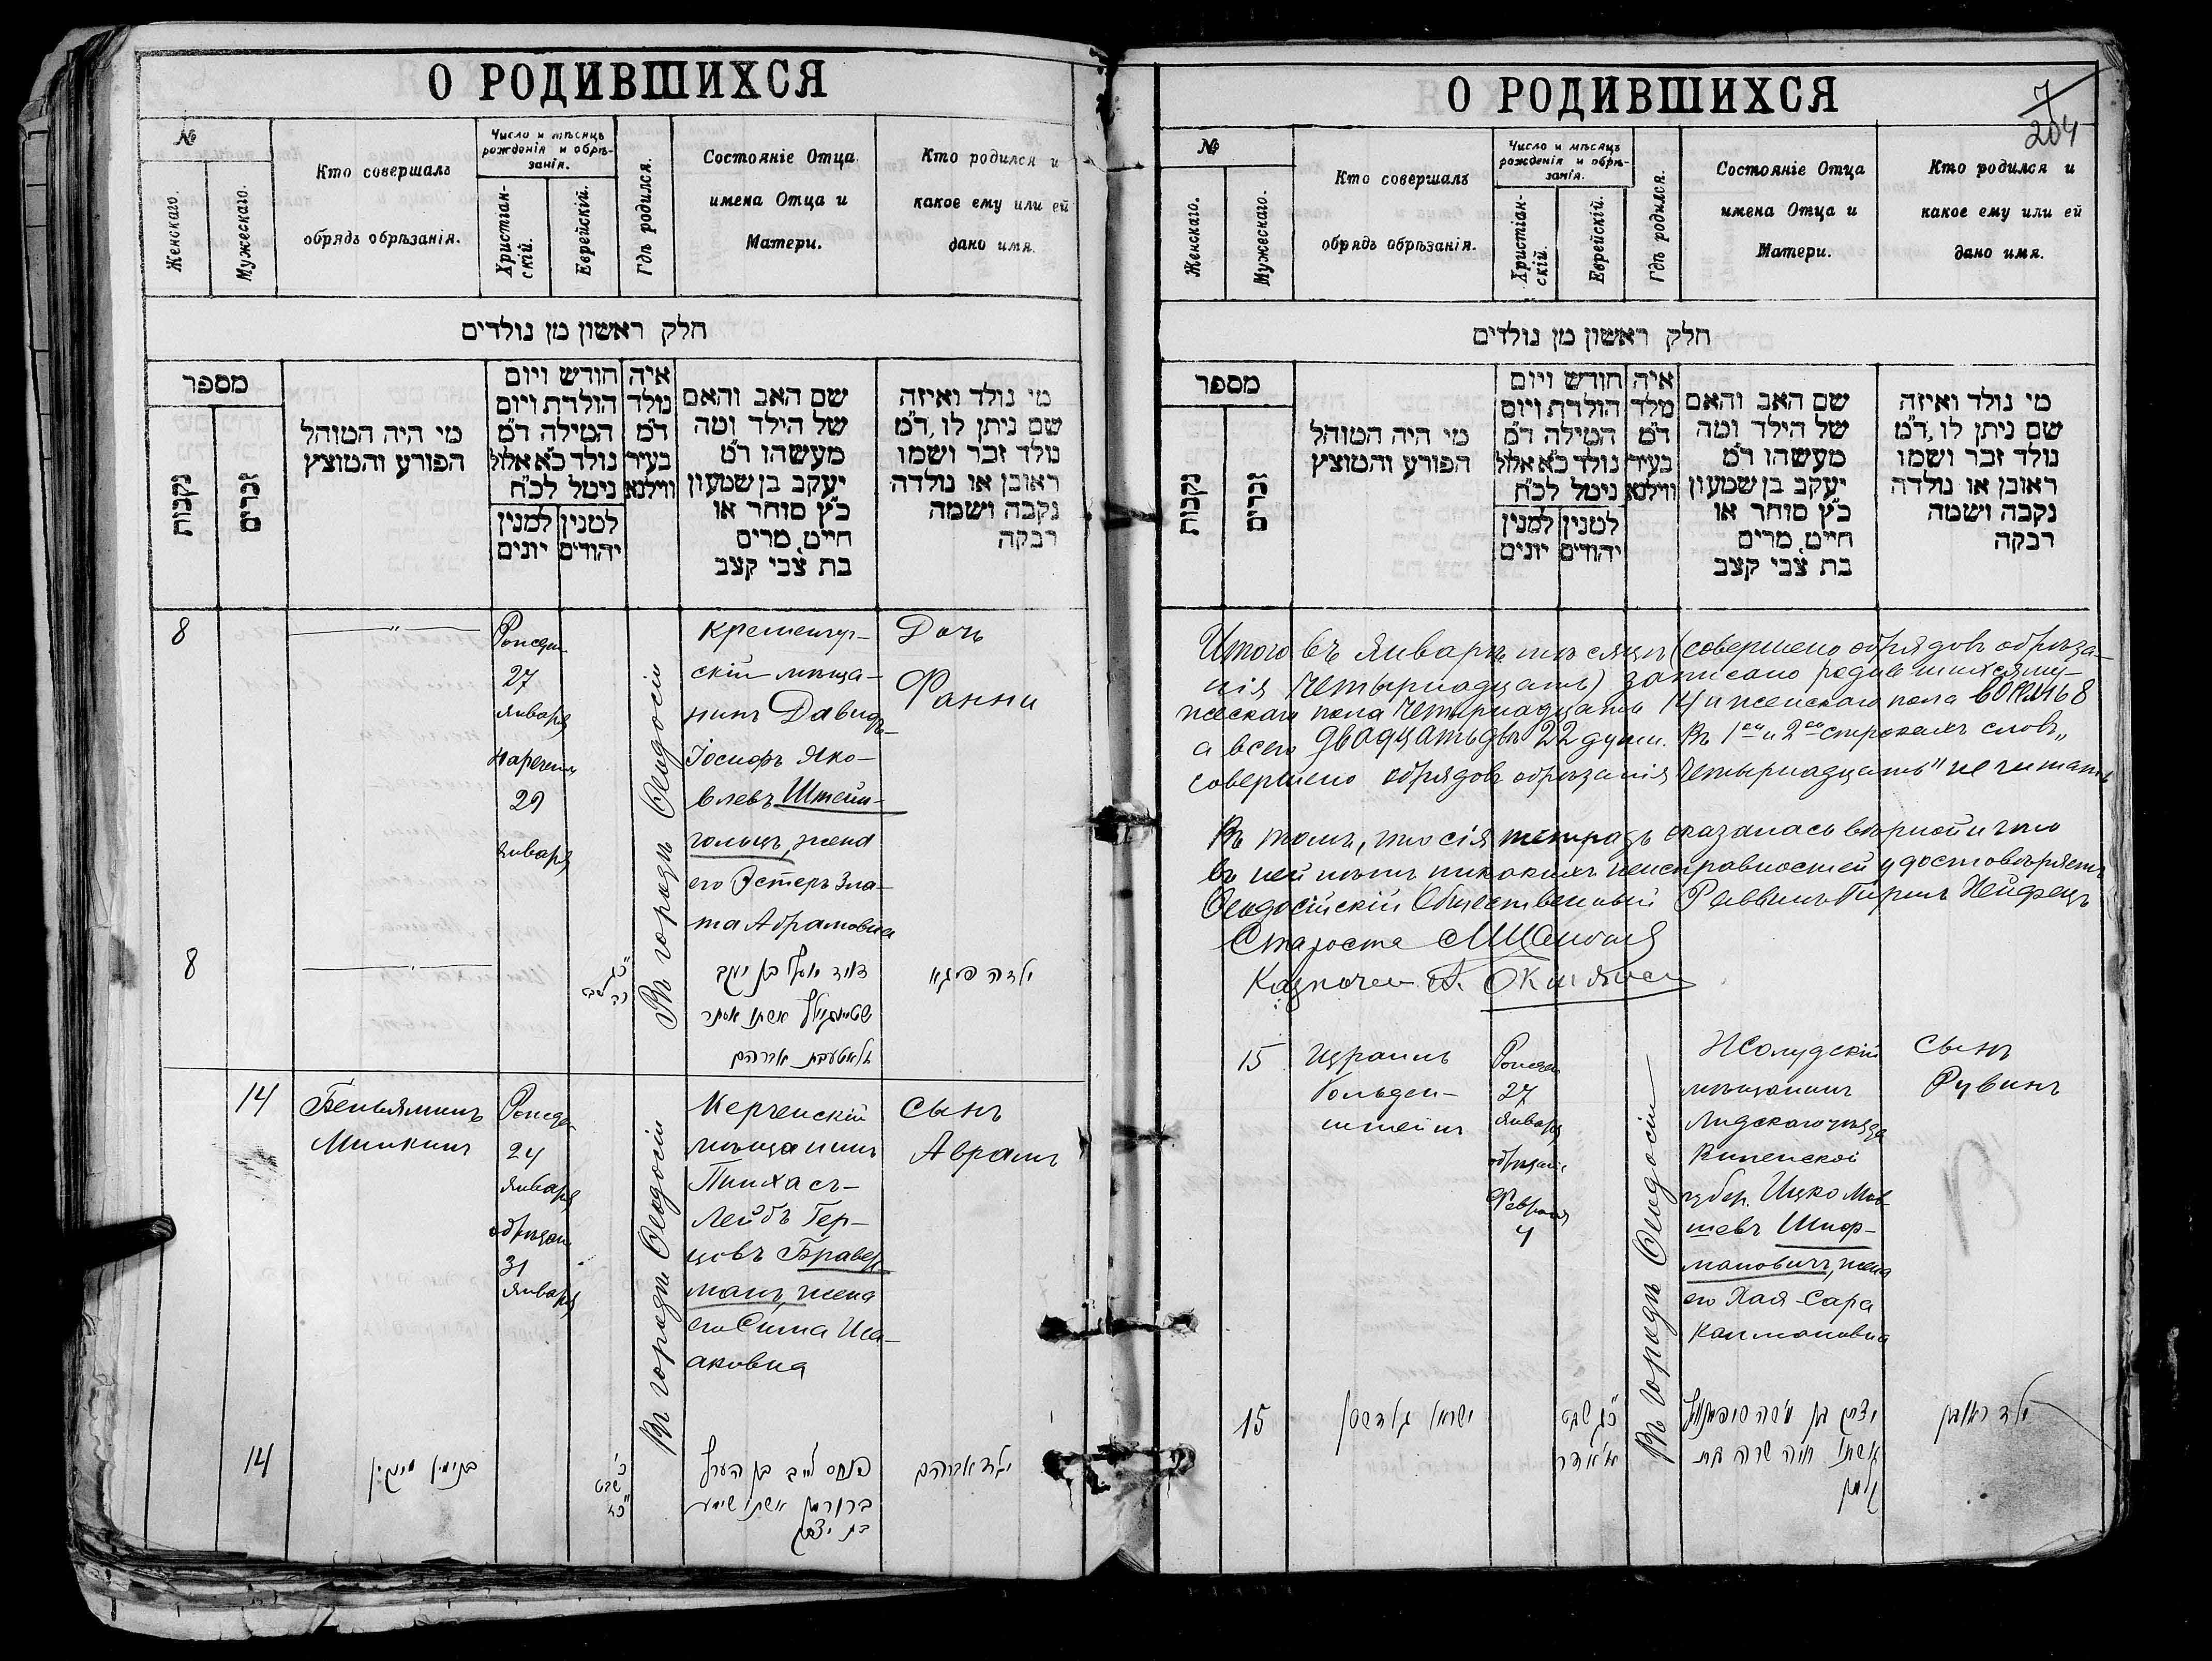 О РОДИВШИХСЯ
№
Женскаго.
Мужескаго.
Кто совершалъ
обрядъ обрѣзанія.
Число и мѣсяцъ
рожденія и обрѣ-
занія.
Христіан-
скій.
Еврейскій.
Гдѣ родился.
Состояніе Отца
имена Отца и
Матери.
Кто родился и
какое ему или ей
дано имя.
חלק ראשון מן נולדים
מספר
נקבות
זכרים
מי היה המוהל
הפורע והמוצץ
חודש ויום
הולדת ויום
המילה ד״מ
נולד כ״א אלול
ניטל לכ״ח
למנין
יונים
למנין
יהודים
איה
נולד
ד״מ
בעיר
ווילנא
שם האב והאם
של הילד ומה
מעשהו ד״מ
יעקב בן שמעון
כ״ץ סוחר או
חייט, מרים
בת צבי קצב
מי נולד ואיזה
שם ניתן לו, ד״מ
נולד זכר ושמו
ראובן או נולדה
נקבה ושמה
רבקה
8
27
Января
29
Января
Въ городѣ Ѳеодосіи
Кременчуг-
скій мѣща-
нинъ Давидъ-
Іосифъ Яко-
влевъ Штейн-
гольцъ, жена
его Эстеръ Зла-
та Абрамовна
Дочь
Фанни
8
דוד יוסף בן יעקב
אשתו אסתר
ילדה פייגא
14
Беньяминъ
Минкинъ
24
Января
31
Января
Въ городѣ Ѳеодосіи
Керченскій
мѣщанинъ
Пинхасъ-
Лейбъ Гер-
цовъ Бравер-
манъ, жена
его Сима Иса-
аковна
Сынъ
Аврамъ
14
בנימין מינקין
כ׳
שבט
כ״ז
פנחס לייב בן הערץ
ברורמן אשתו סימע
בת יצחק
ילד אברהם
О РОДИВШИХСЯ
7
204
№
Женскаго.
Мужескаго.
Кто совершалъ
обрядъ обрѣзанія.
Число и мѣсяцъ
рожденія и обрѣ-
занія.
Христіан-
скій.
Еврейскій.
Гдѣ родился.
Состояніе Отца
имена Отца и
Матери.
Кто родился и
какое ему или ей
дано имя.
חלק ראשון מן נולדים
מספר
נקבות
זכרים
מי היה המוהל
הפורע והמוצץ
חודש ויום
הולדת ויום
המילה ד״מ
נולד כ״א אלול
ניטל לכ״ח
למנין
יונים
למנין
יהודים
איה
מלד
ד״מ
בעיר
ווילנא
שם האב והאם
של הילד ומה
מעשהו ד״מ
יעקב בן שמעון
כ״ץ סוחר או
חייט, מרים
בת צבי קצב
מי נולד ואיזה
שם ניתן לו, ד״מ
נולד זכר ושמו
ראובן או נולדה
נקבה ושמה
רבקה
Итого въ Январѣ мѣсяцѣ (совершено обрядовъ обрѣза-
нія четырнадцать) записано родившихся му-
жескаго пола четырнадцать 14 и женскаго пола восемь 8
а всего двадцать двѣ 22 души. Въ 1ой и 2ой строкахъ словъ „
совершено обрядовъ обрѣзанія четырнадцать" не читать
Въ томъ, что сія тетрадь оказалась вѣрной и что
въ ней нѣтъ никакихъ неисправностей удостовѣряетъ
Ѳеодосійскій Общественный Раввинъ Гиршъ Нейфецъ
Староста
Казначей А.
15
Израиль
Гольден-
штейнъ
27
Января
Февраля
4
Въ городѣ Ѳеодосіи
Жолудскій
мѣщанинъ
Лидскаго уѣзда
Виленской
губер. Ицко Мов-
шевъ Шиф-
мановичъ, жена
его Хая-Сара
Калмановна
Сынъ
Рувинъ
15
ישראל גולדשטיין
כ״ג שבט
א׳ אדר
יצחק בן משה
אשתו חיה שרה בת
קלמן
ילד ראובן